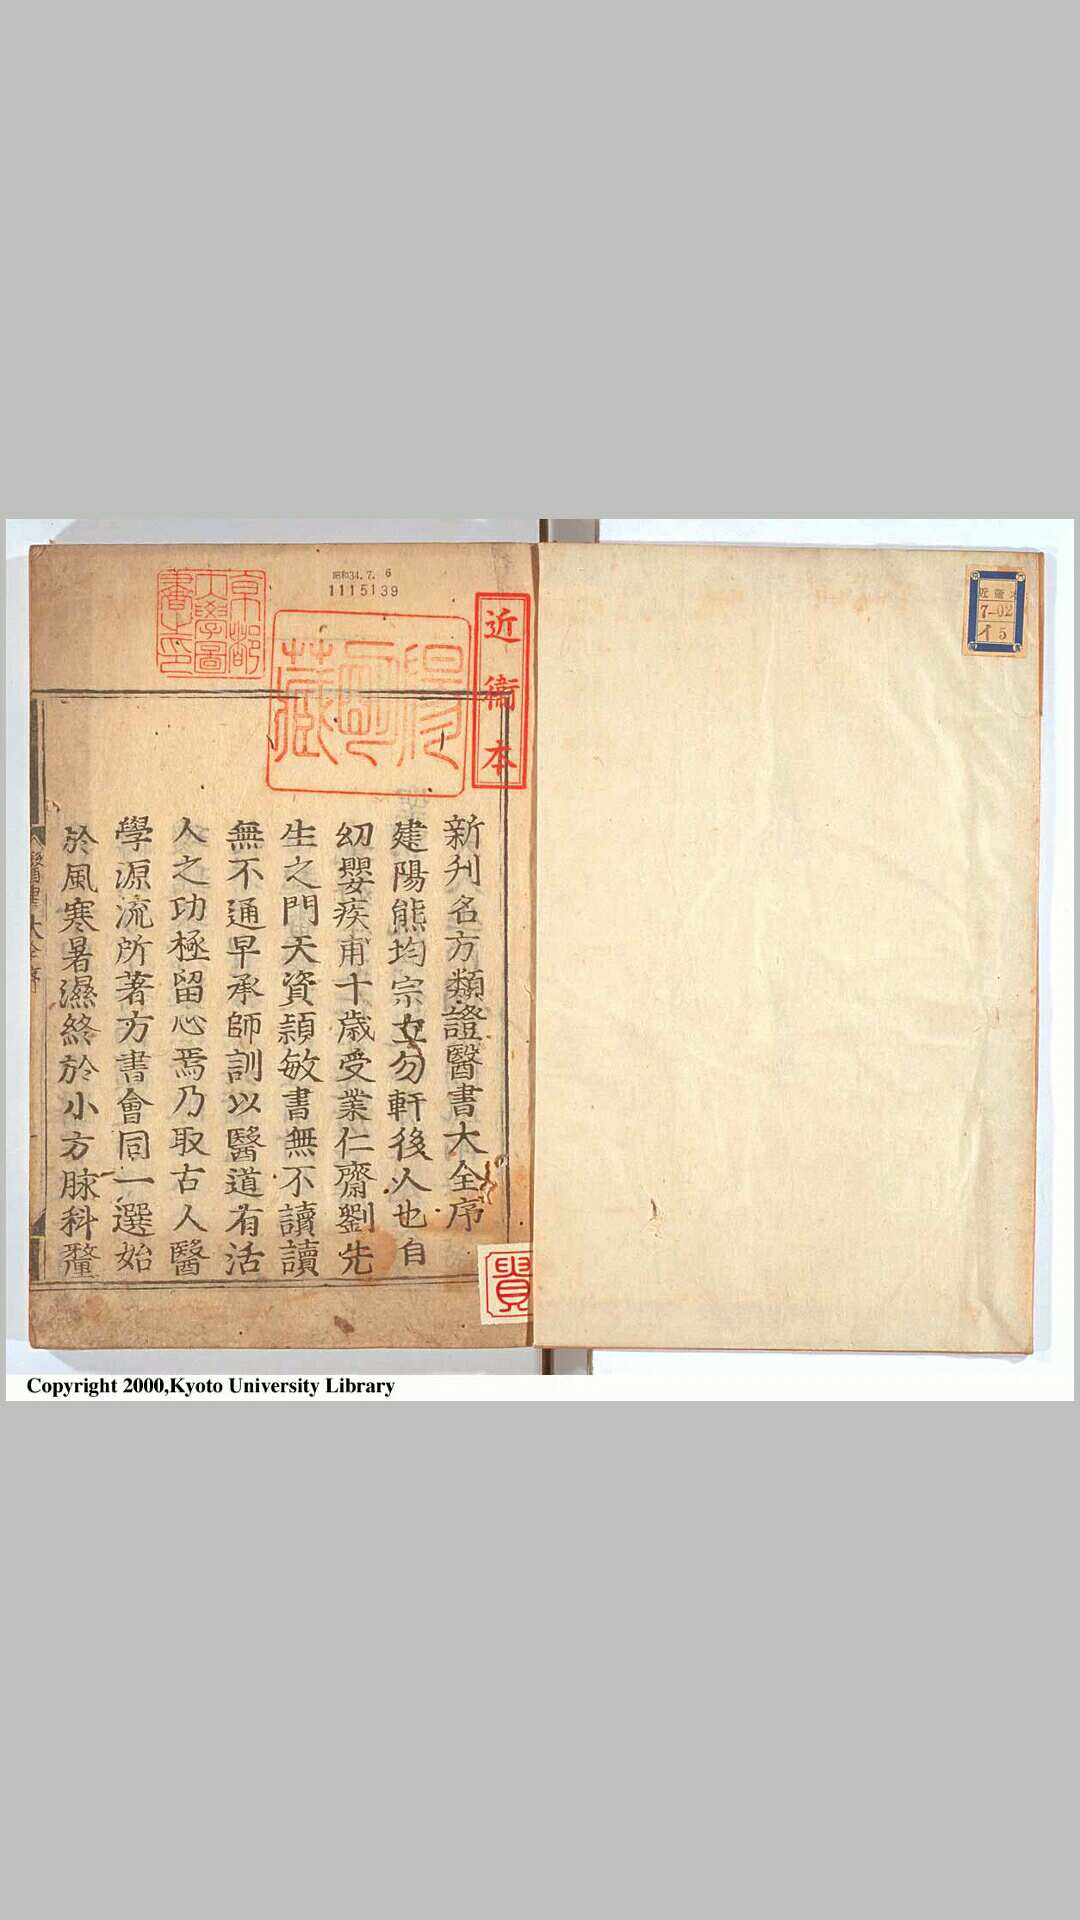 京都
大學圖
書之印
昭和34.7.6
1115139
近衞本
陽明藏
近衞本
7-02
イ 5
新刋名方類證醫書大全序
建陽熊均宗立勿軒後人也自
㓜嬰疾甫十歲受業仁齋劉先
生之門天資頴敏書無不讀讀
無不通早承師訓以醫道有活
人之功極留心焉乃取古人醫
學源流所著方書會同一選始
於風寒暑濕終於小方脉科釐
醫書大全序
貴
Copyright 2000,Kyoto University Library